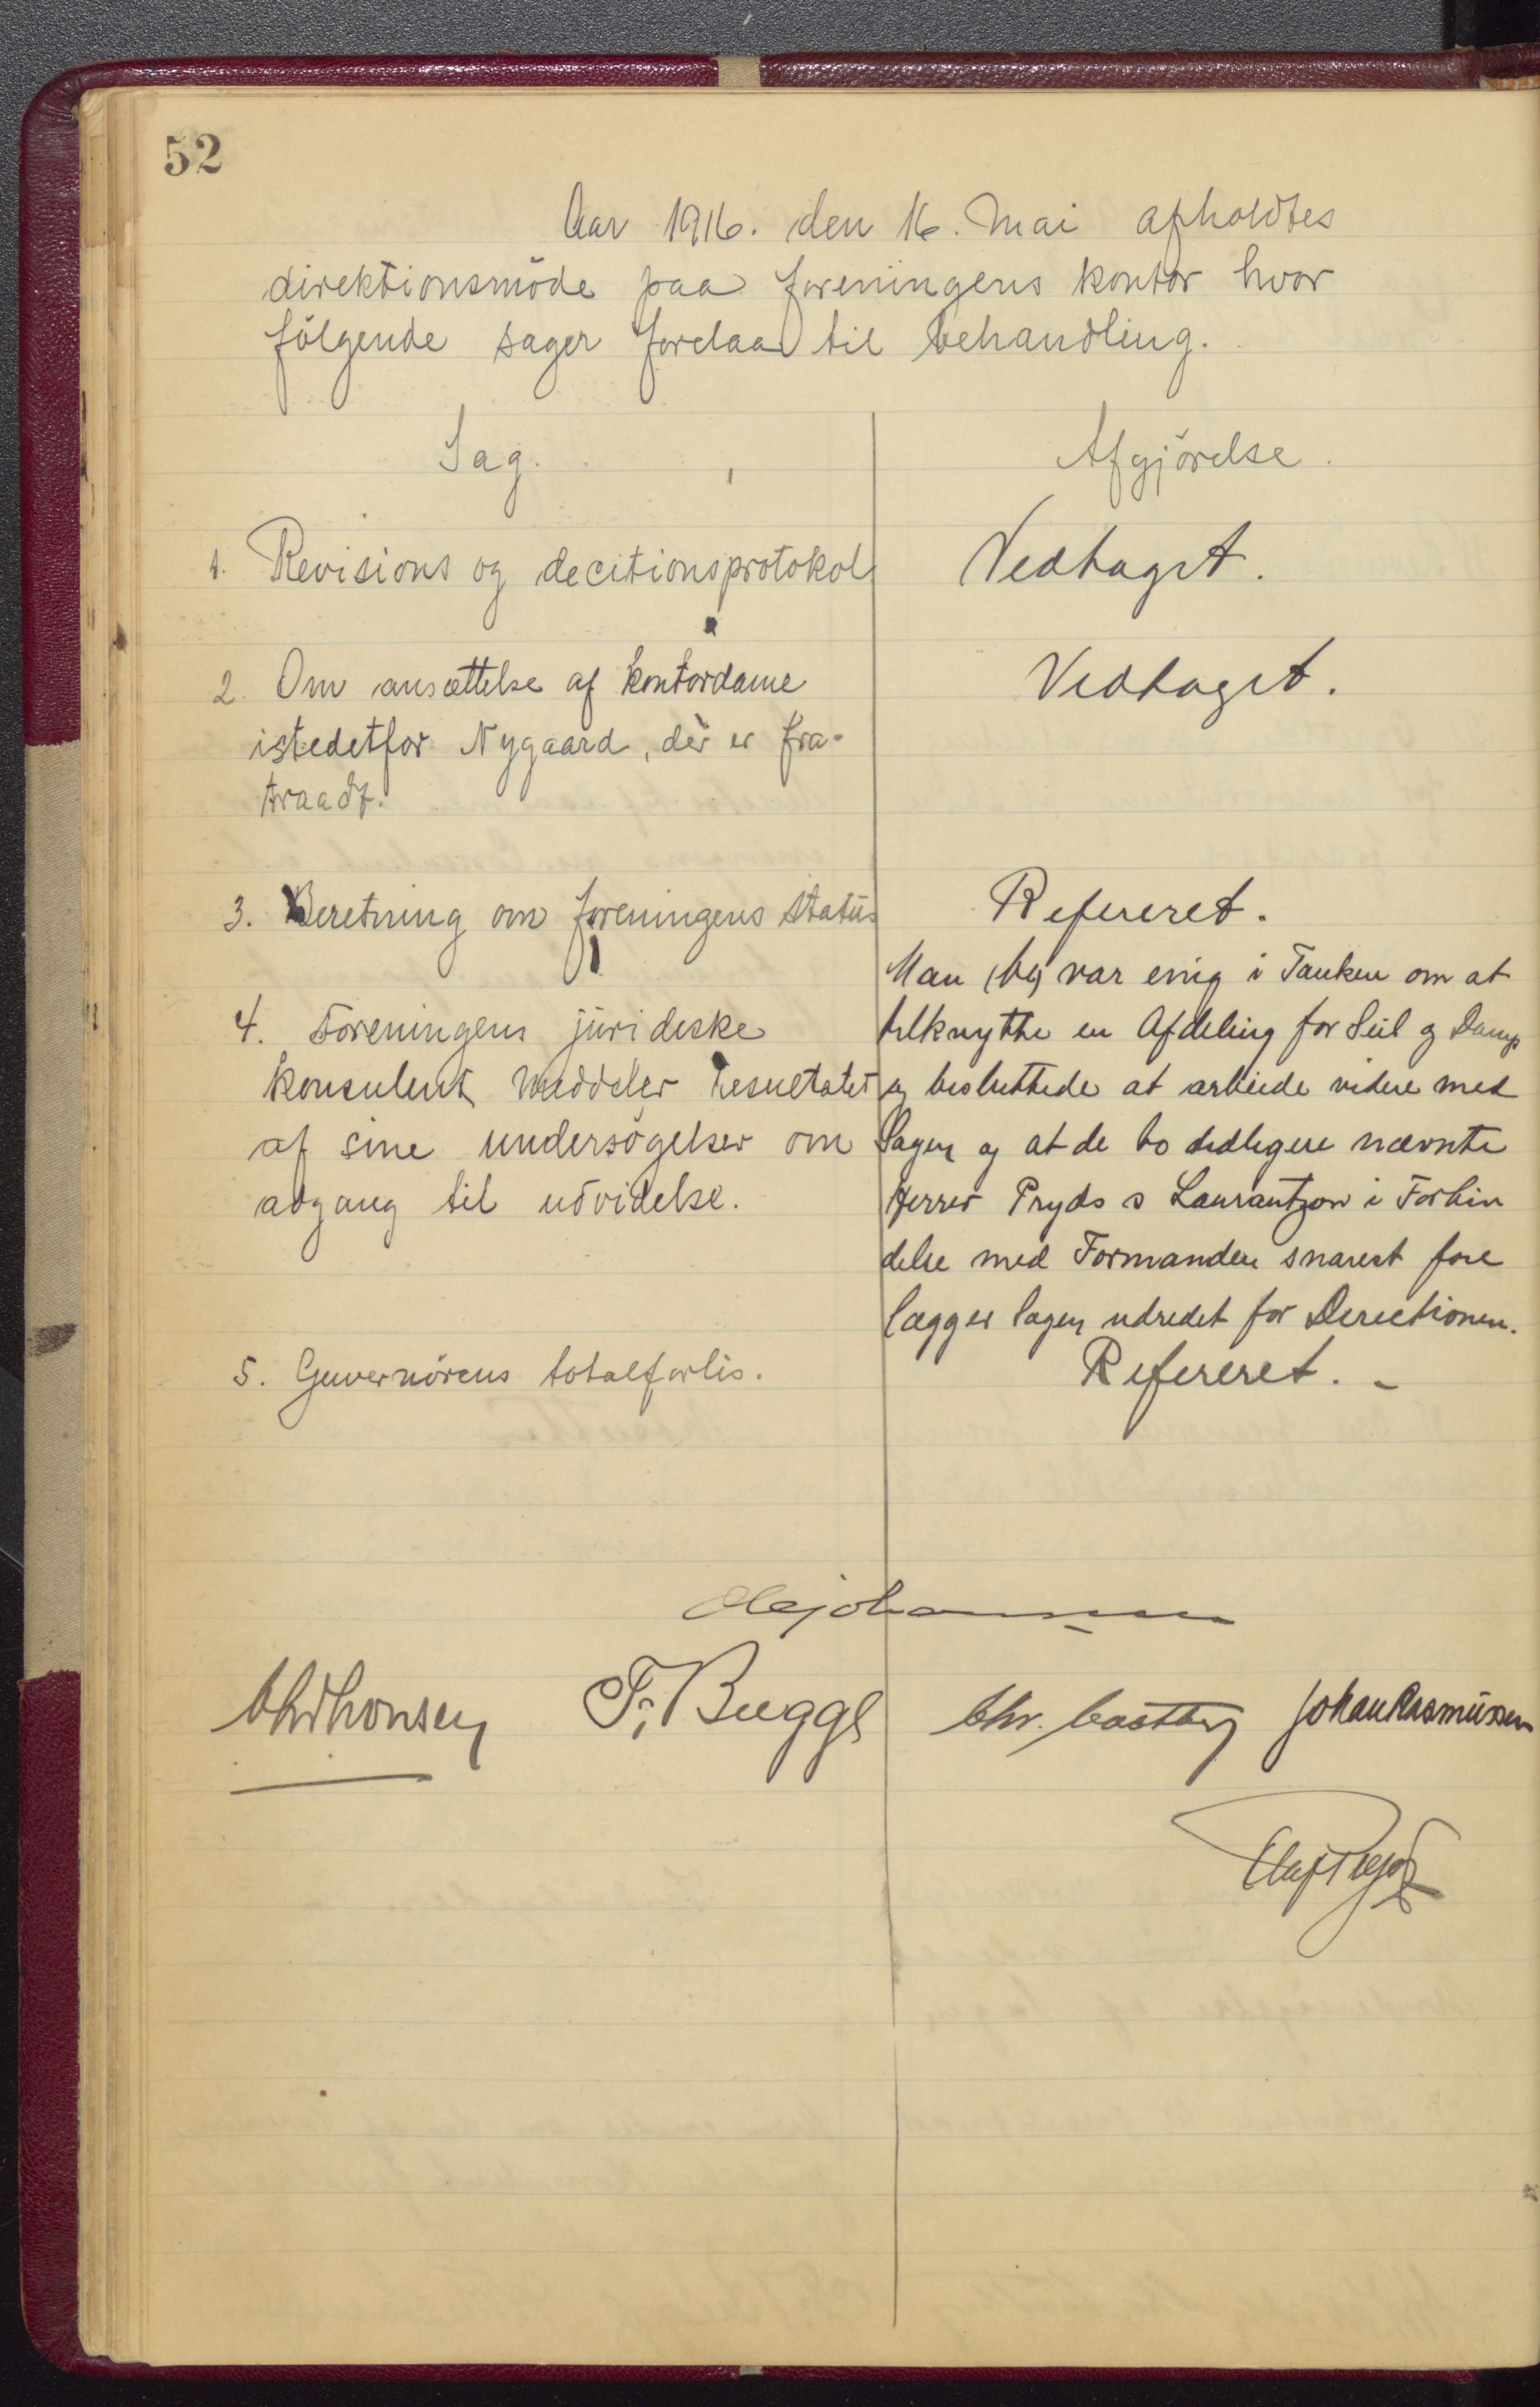 52
Aar 1916. den 16. Mai afholdtes
direktionsmöde paa foreningens kontor hvor
fölgende sager forelaa til behandling.
Sag.
Afgjörelse.
1. Revisions og decitionsprotokol
Vedtaget.
2. Om ansættelse af kontordame
istedetfor Nygaard, der er fra-
traadt.
Vedtaget.
3. Beretning om foreningens status
Refereret.
4. Foreningens jurideske
konsulent meddeler resultatet
af sine undersögelser om
adgang til udvidelse.
Man var enig i Tanken om at
tilknytte en Afdeling for Seil og Damp
og besluttede at arbeide videre med
Sagen og at de to tidligere nævnte
Herrer Pryds & Laurantzon i Forbin
delse med Formanden snarest fore
lægger Sagen udredet for Directionen.
5. Guvernörens totalforlis.
Refereret. -
Ole Johannesen
Chr Thonsen F. Bugge Chr. Castberg Johan Rasmussen